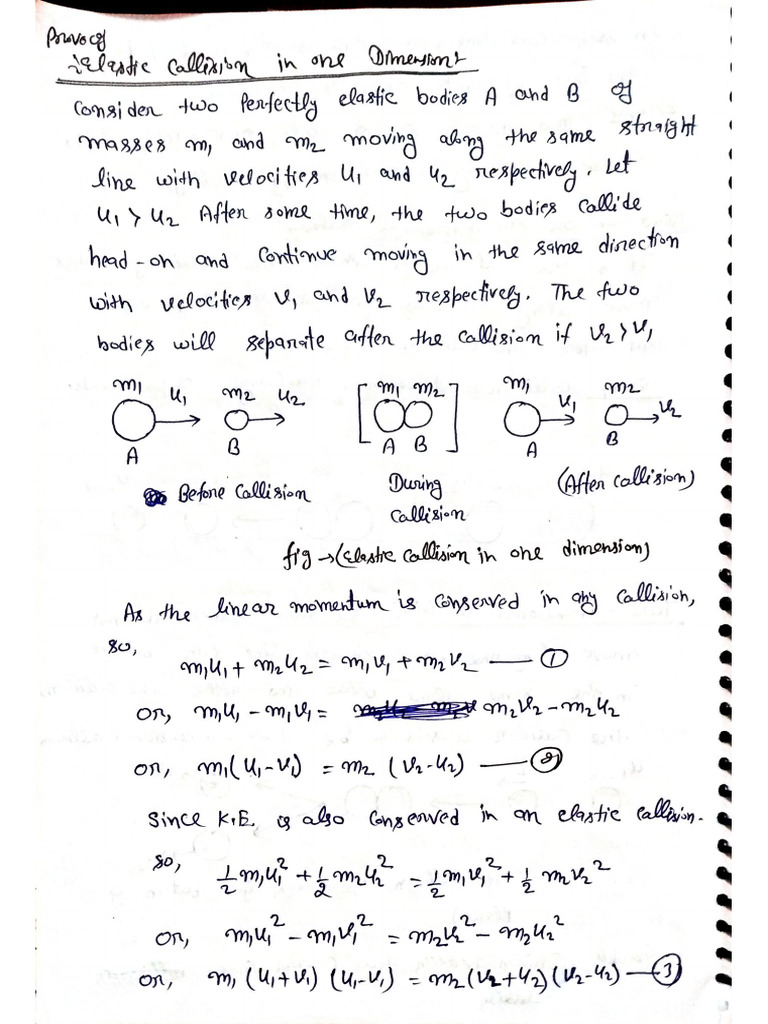 Proof of
Elastic Collision in one Dimension:
Consider two Perfectly elastic bodies A and B of
masses m₁ and m₂ moving along the same straight
line with velocities u₁ and u₂ respectively. Let
u₁ > u₂ After some time, the two bodies Collide
head-on and Continue moving in the same direction
with velocities v₁ and v₂ respectively. The two
bodies will separate after the Collision if v₂ > v₁
m₁ u₁ m₂ u₂ [ m₁ m₂ ] m₁ v₁ m₂ v₂
A B A B A B
Before Collision During Collision (After Collision)
fig → (Elastic Collision in one dimension)
As the linear momentum is Conserved in any Collision,
so,
m₁u₁ + m₂u₂ = m₁v₁ + m₂v₂ — ①
or, m₁u₁ - m₁v₁ = m₂v₂ - m₂u₂
or, m₁(u₁ - v₁) = m₂ (v₂ - u₂) — ②
Since K.E. is also Conserved in an elastic Collision.
so, 1/2 m₁u₁² + 1/2 m₂u₂² = 1/2 m₁v₁² + 1/2 m₂v₂²
or, m₁u₁² - m₁v₁² = m₂v₂² - m₂u₂²
or, m₁ (u₁ + v₁) (u₁ - v₁) = m₂ (v₂ + u₂) (v₂ - u₂) — ③